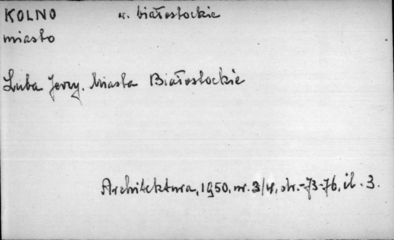 KOLNO w. białostockie
miasto
Luba Jerzy. Miasta Białostockie
Architektura, 1950, nr. 3/4, str.-73-76, il. 3.